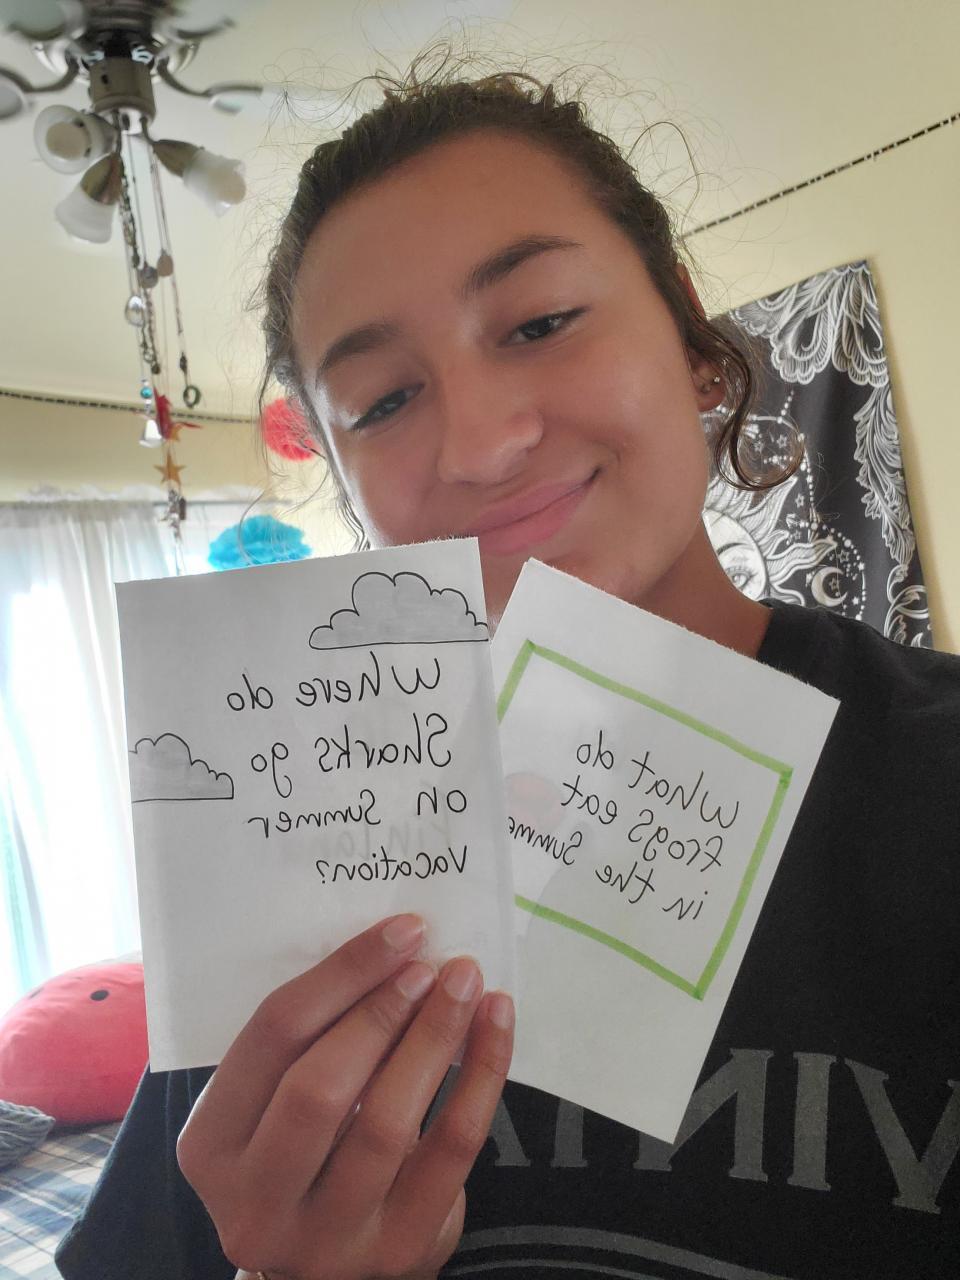 Where do
Sharks go
on Summer
Vacation?
What do
frogs eat
in the Summe